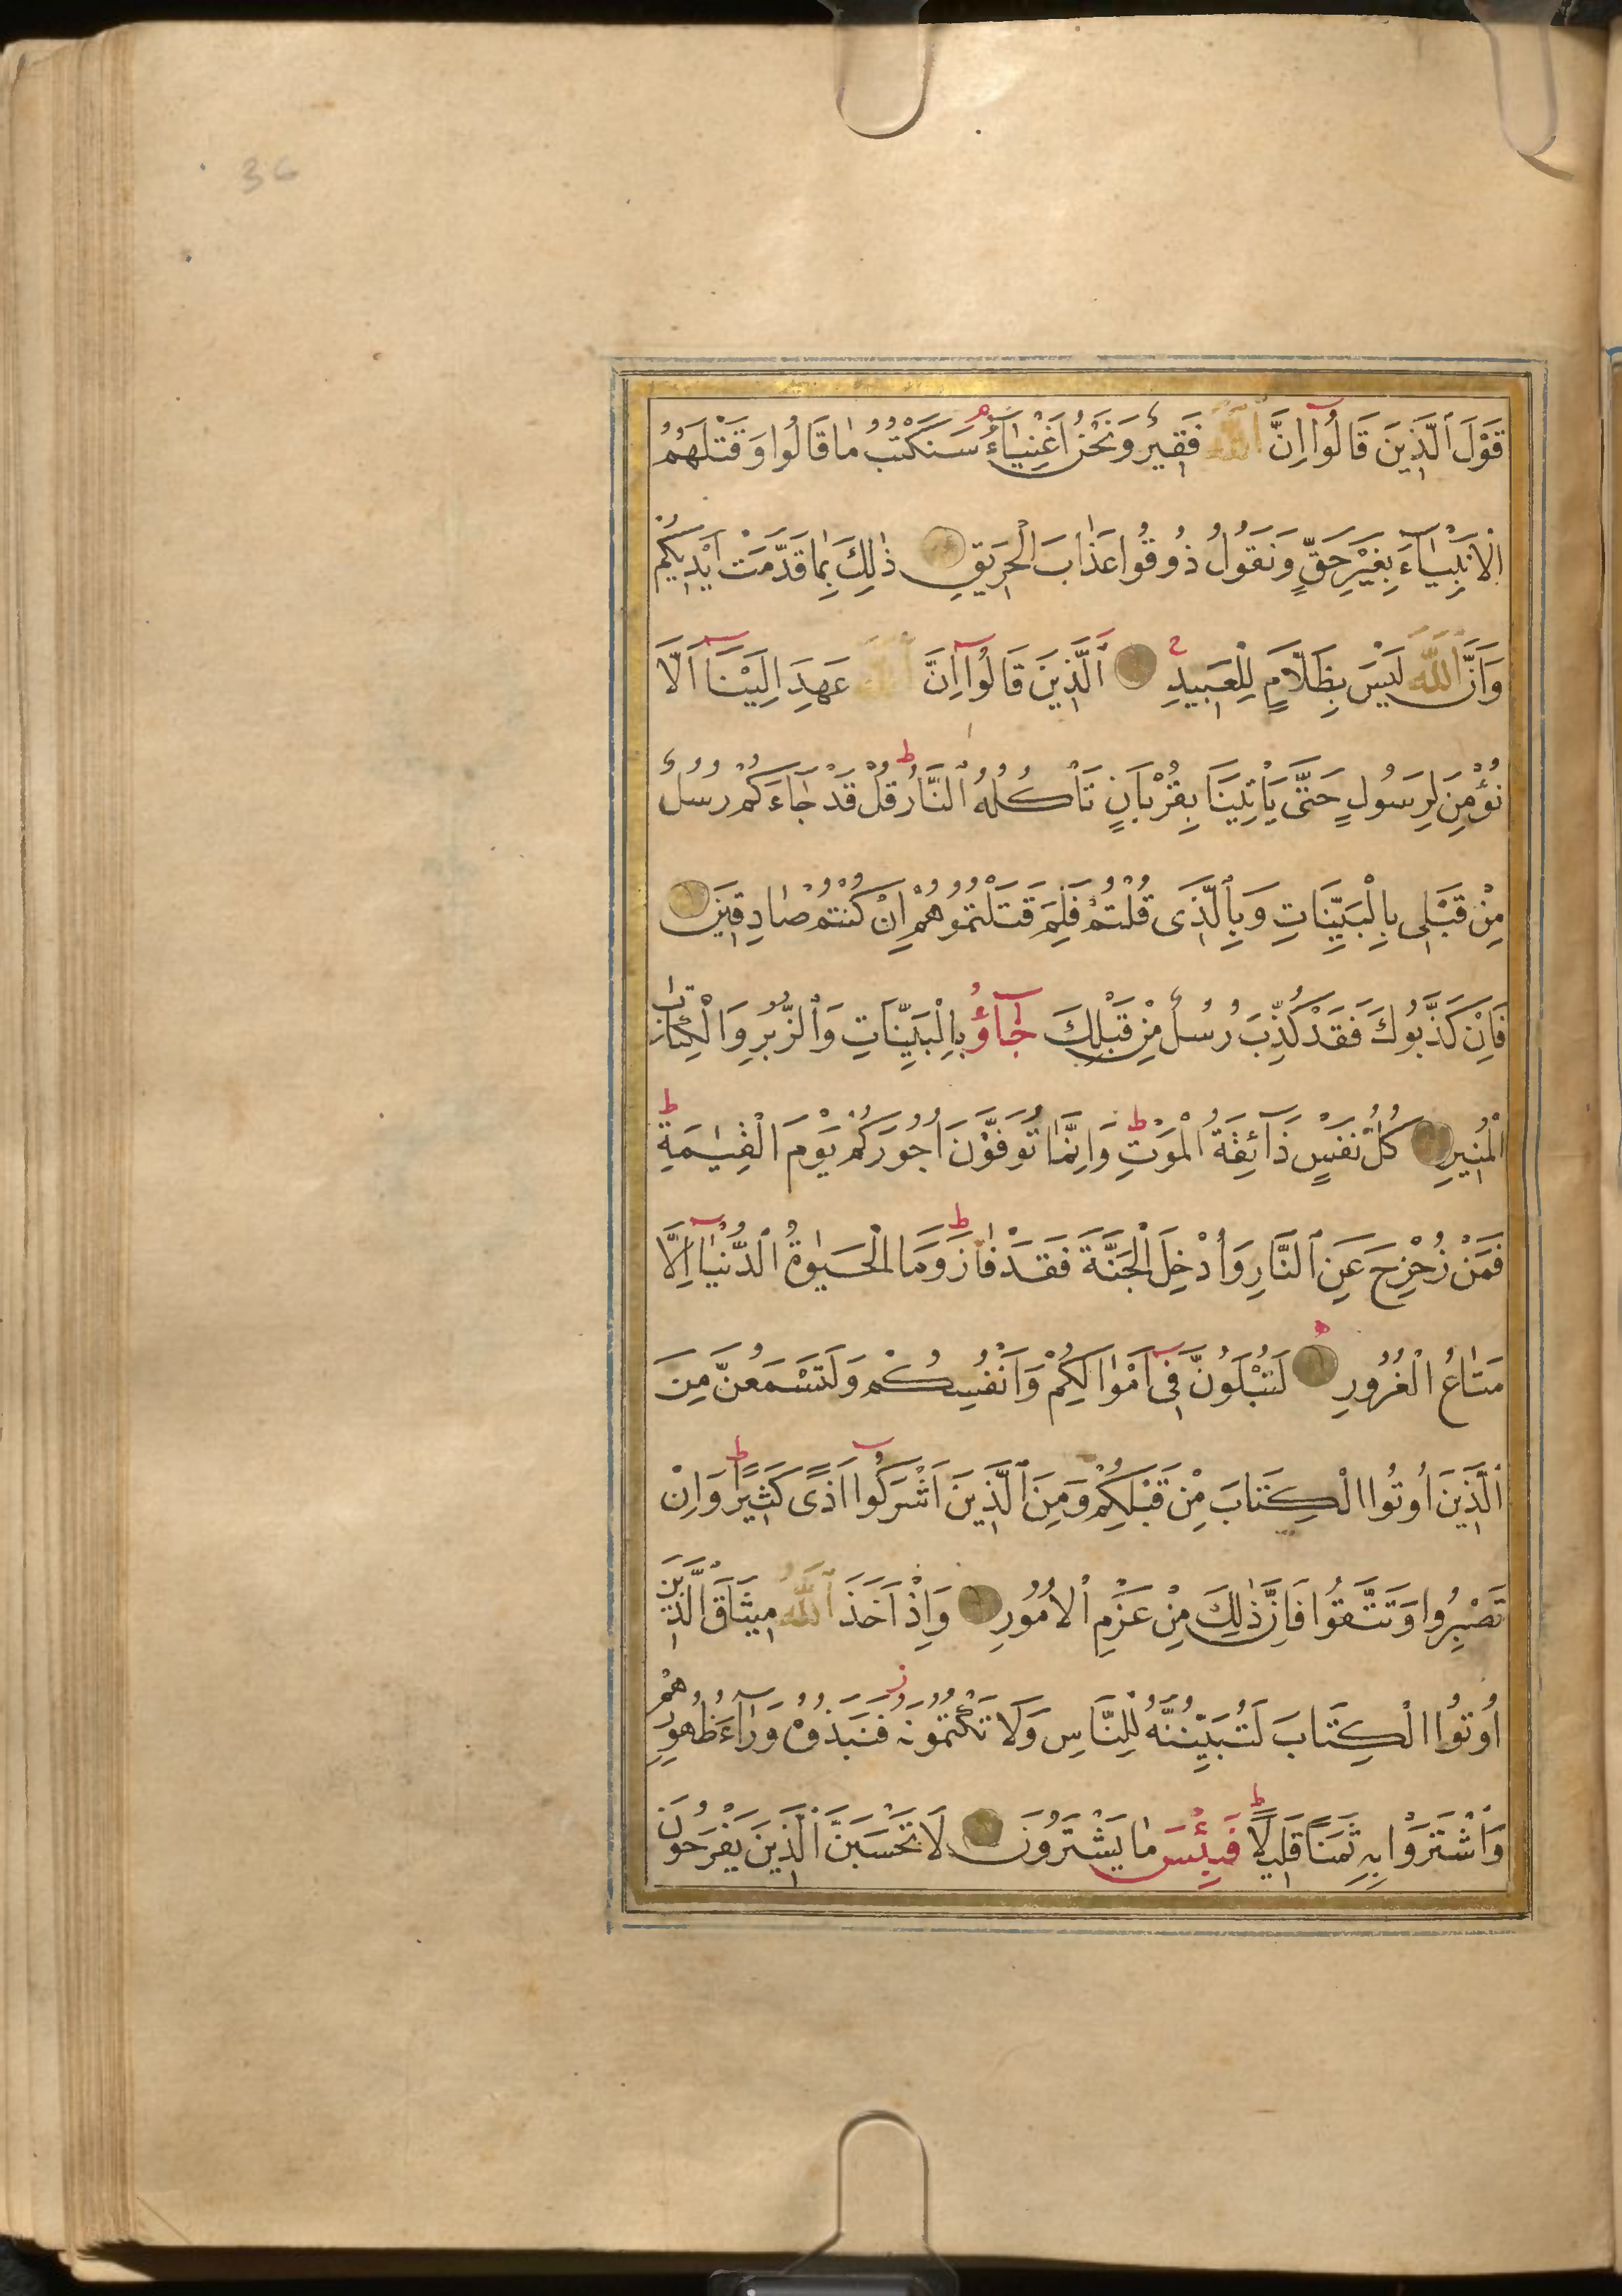 36
قَوْلَ الَّذِينَ قَالُوا اِنَّ اللّٰهَ فَقِيرٌ وَنَحْنُ اَغْنِيَاءُ سَنَكْتُبُ مَا قَالُوا وَقَتْلَهُمُ
الْاَنْبِيَاءَ بِغَيْرِ حَقٍّ وَنَقُولُ ذُوقُوا عَذَابَ الْحَرِيقِ ذٰلِكَ بِمَا قَدَّمَتْ اَيْدِيكُمْ
وَاَنَّ اللّٰهَ لَيْسَ بِظَلَّامٍ لِلْعَبِيدِ اَلَّذِينَ قَالُوا اِنَّ اللّٰهَ عَهِدَ اِلَيْنَا اَلَّا
نُؤْمِنَ لِرَسُولٍ حَتَّى يَاْتِيَنَا بِقُرْبَانٍ تَاْكُلُهُ النَّارُ قُلْ قَدْ جَاءَكُمْ رُسُلٌ
مِنْ قَبْلِى بِالْبَيِّنَاتِ وَبِالَّذِى قُلْتُمْ فَلِمَ قَتَلْتُمُوهُمْ اِنْ كُنْتُمْ صَادِقِينَ
فَاِنْ كَذَّبُوكَ فَقَدْ كُذِّبَ رُسُلٌ مِنْ قَبْلِكَ جَآؤُ بِالْبَيِّنَاتِ وَالزُّبُرِ وَالْكِتَابِ
الْمُنِيرِ كُلُّ نَفْسٍ ذَآئِقَةُ الْمَوْتِ وَاِنَّمَا تُوَفَّوْنَ اُجُورَكُمْ يَوْمَ الْقِيٰمَةِ
فَمَنْ زُحْزِحَ عَنِ النَّارِ وَاُدْخِلَ الْجَنَّةَ فَقَدْ فَازَ وَمَا الْحَيٰوةُ الدُّنْيَا اِلَّا
مَتَاعُ الْغُرُورِ لَتُبْلَوُنَّ فِى اَمْوَالِكُمْ وَاَنْفُسِكُمْ وَلَتَسْمَعُنَّ مِنَ
الَّذِينَ اُوتُوا الْكِتَابَ مِنْ قَبْلِكُمْ وَمِنَ الَّذِينَ اَشْرَكُوا اَذًى كَثِيرًا وَاِنْ
تَصْبِرُوا وَتَتَّقُوا فَاِنَّ ذٰلِكَ مِنْ عَزْمِ الْاُمُورِ وَاِذْ اَخَذَ اللّٰهُ مِيثَاقَ الَّذِينَ
اُوتُوا الْكِتَابَ لَتُبَيِّنُنَّهُ لِلنَّاسِ وَلَا تَكْتُمُونَهُ فَنَبَذُوهُ وَرَآءَ ظُهُورِهِمْ
وَاشْتَرَوْا بِهِ ثَمَنًا قَلِيلًا فَبِئْسَ مَا يَشْتَرُونَ لَا تَحْسَبَنَّ الَّذِينَ يَفْرَحُونَ